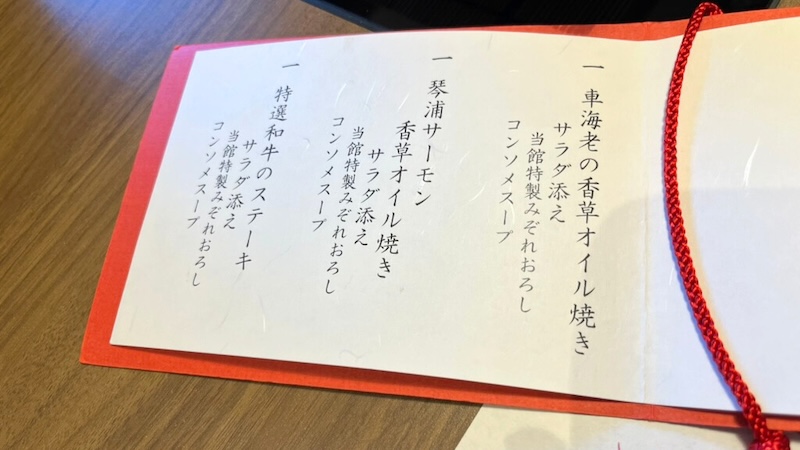 一 車海老の香草オイル焼き
サラダ添え
当館特製みぞれおろし
コンソメスープ
一 琴浦サーモン
香草オイル焼き
サラダ添え
当館特製みぞれおろし
コンソメスープ
一 特選和牛のステーキ
サラダ添え
当館特製みぞれおろし
コンソメスープ